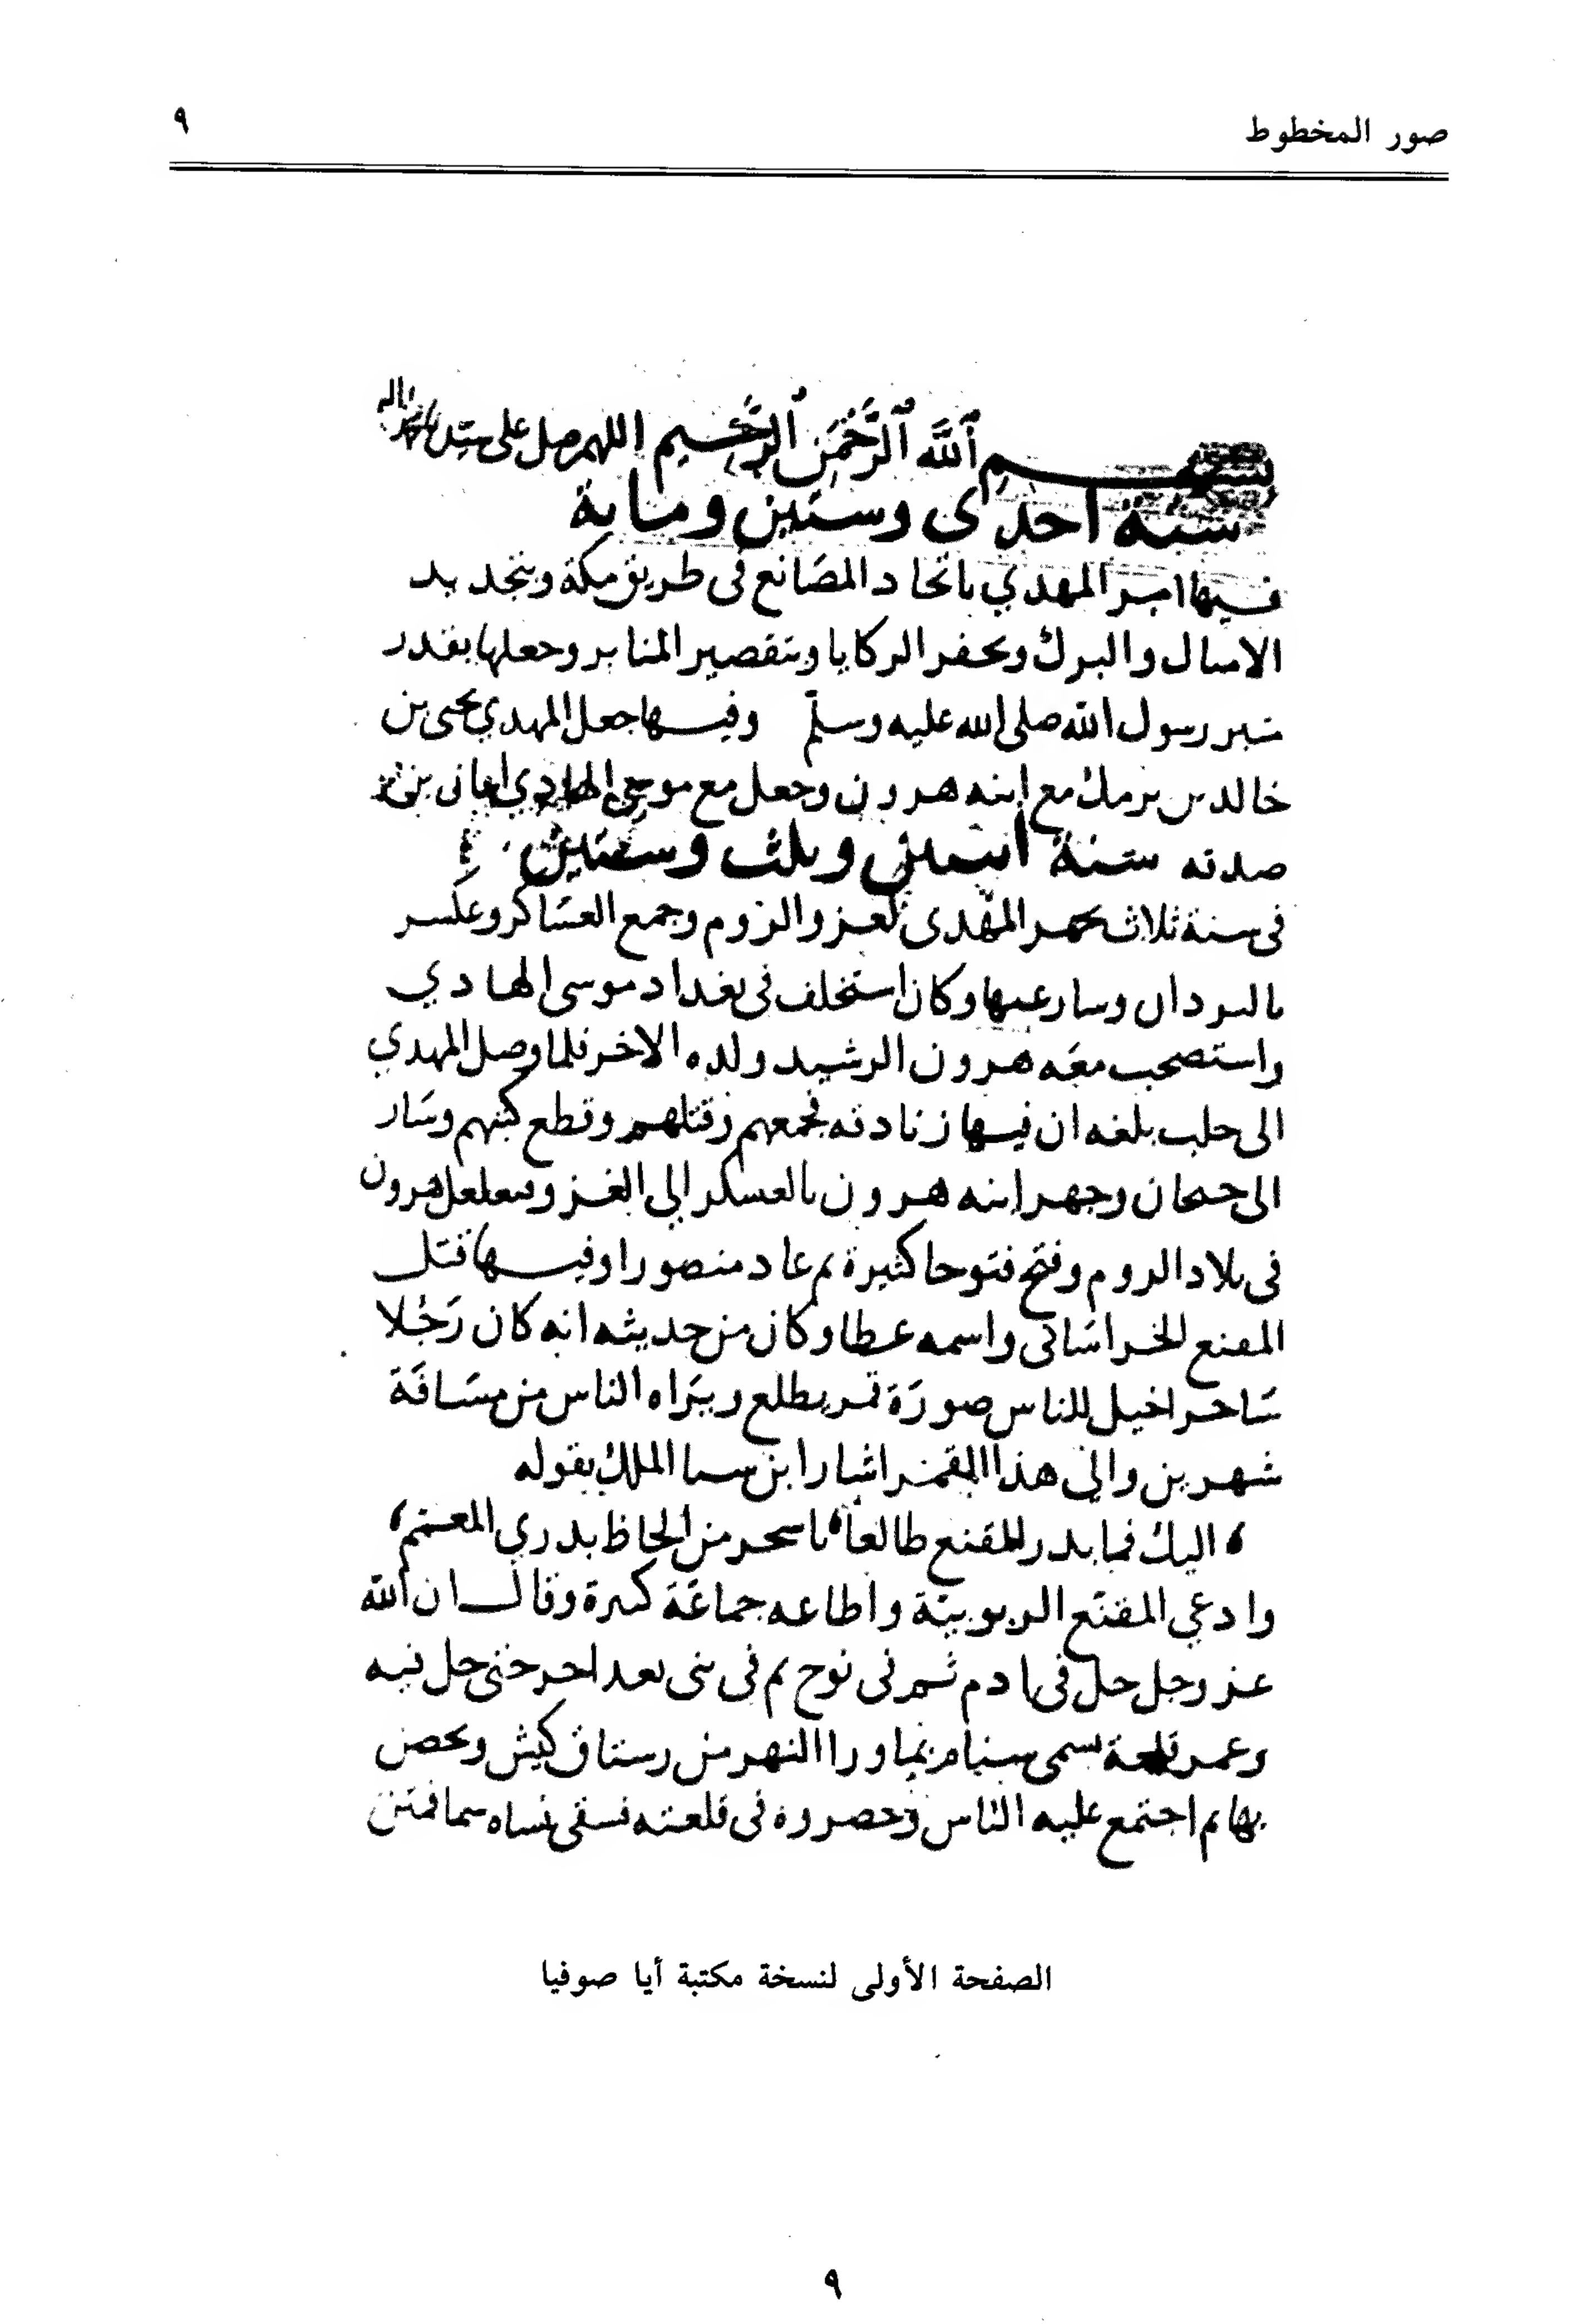 صور المخطوط
٩
بسم ٱللَّه ٱلرَّحْمَٰن ٱلرَّحِيم اللهم صل على سيدنا محمد واله
سنة احدى وستين وماية
فيها امر المهدي باتخاد المصانع فى طريق مكة وبتجديد
الاميال والبرك وبحفر الركايا وبتقصير المنابر وجعلها بقدر
منبر رسول الله صلى الله عليه وسلم وفيها جعل المهدي يحيى بن
خالد بن برمك مع ابنه هرون وجعل مع موسى الهادي ابان بن
صدقه سنة اثنين وثلث وستين
فى سنة ثلاث تجهز المهدى لغزو الروم وجمع العساكر وعسكر
بالبردان وسار عنها وكان استخلف فى بغداد موسى الهادي
واستصحب معه هرون الرشيد ولده الاخر فلما وصل المهدي
الى حلب بلغه ان فيها زنادقه فجمعهم وقتلهم وقطع كتبهم وسار
الى جيحان وجهز ابنه هرون بالعسكر الى الغزو فتغلغل هرون
فى بلاد الروم وفتح فتوحا كثيرة ثم عاد منصورا وفيها قتل
المقنع الخراسانى واسمه عطا وكان من حديثه انه كان رَجُلا
ساحرا خيل للناس صورة قمر يطلع ويراه الناس من مسافة
شهرين والى هذا القمر اشار ابن سنا الملك بقوله
اليك فما بدر المقنع طالعا باسحر من الحاظ بدري المعمم
وادعى المقنع الربوبية واطاعه جماعة كثيرة وقال ان الله
عز وجل حل فى ادم ثم فى نوح ثم فى نبى بعد اخر حتى حل فيه
وعمر قلعة تسمى سنام بماورا النهر من رستاق كيش وتحصن
بها ثم اجتمع عليه الناس وحصروه فى قلعته فسقى نساه سما فمتن
الصفحة الأولى لنسخة مكتبة أيا صوفيا
٩